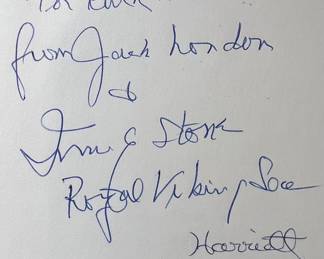 for
from Jack London
&
Irving Stone
Royal Viking Sea
Harriett